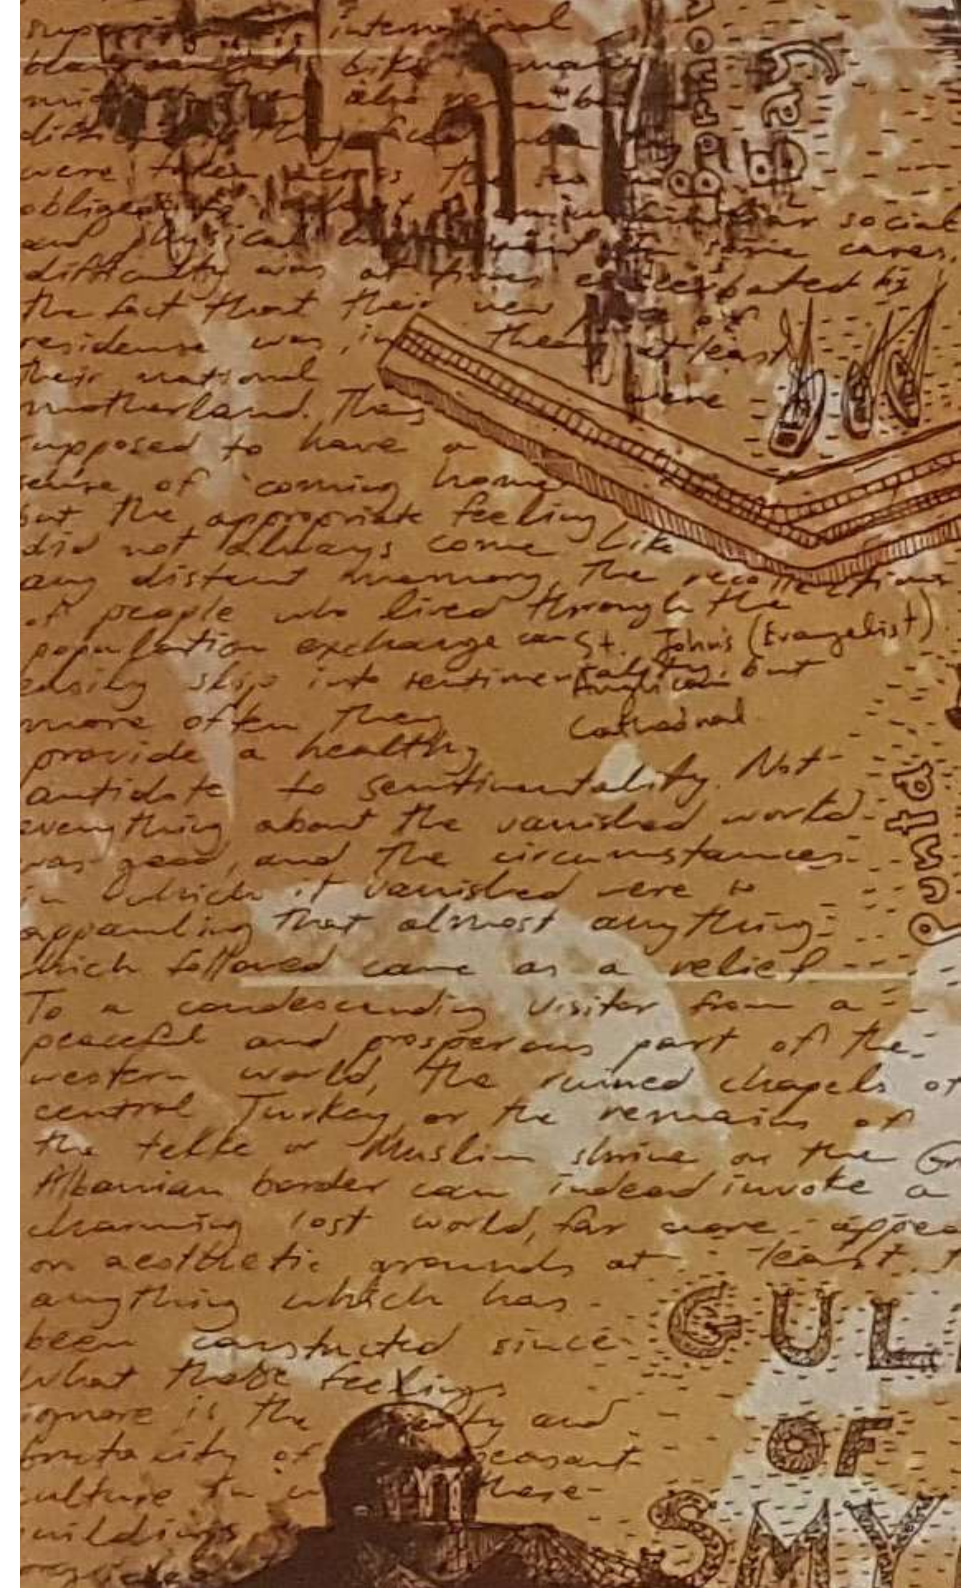 international
many
also
were taken across the sea
social
and physical in some cases,
difficulty was at times exacerbated by
the fact that their new
residense was, in theory at least
their national
motherland. They were
supposed to have a
sense of 'coming home
but the appropriate feeling
did not always come like
any distent memory, the recollections
of people who lived through the
population exchange can
easily skip into sentimentality, but
more often they
provide a healthy
antidote to sentimentality. Not
everything about the vanished world
was good, and the circumstances
in which it vanished were so
appauling that almost anything
which followed came as a relief
To a condescending visitor from a
peaceful and prosperous part of the
western world, the ruined chapels of
central Turkey or the remains of
the tekke or Muslim shrine on the Gr
Albanian border can indeed invoke a
charming lost world, far more appea
on aesthetic grounds at least t
anything which has
been constucted since
What these feelings
ignore is the and
brutality of peasant
culture in these
buildings
Bay
St. John's (Evangelist)
Anglican
Cathedral
Punta
GUL
OF
SMY